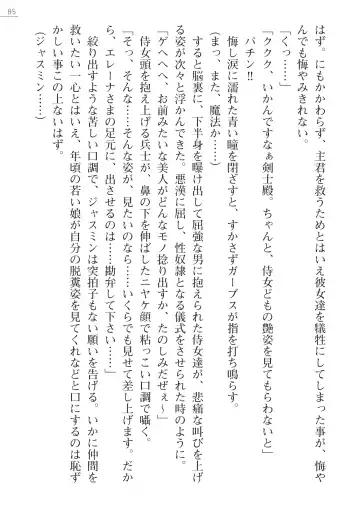 85
はず。にもかかわらず、主君を救うためとはいえ彼女達を犠牲にしてしまった事が、悔や
んでも悔やみきれない。
「くっ……」
「ククク、いかんですなぁ剣士殿。ちゃんと、侍女どもの艶姿を見てもらわないと」
パチン!!
悔し涙に濡れた青い瞳を閉ざすと、すかさずガープスが指を打ち鳴らす。
(まっ、また、魔法か……)
すると脳裏に、下半身を曝け出して屈強な男に抱えられた侍女達が、悲痛な叫びを上げ
る姿が次々と浮かんできた。悪漢に屈し、性奴隷となる儀式をさせられた時のように。
「ゲへへへ、お前みたいな美人がどんなモノ捻り出すか、たのしみだぜぇ〜」
侍女頭を抱え上げる兵士が、鼻の下を伸ばしたニヤケ顔で粘っこい口調で囁く。
「そっ、そんな……そんな姿が、見たいのなら……いくらでも見せて差し上げます。だか
ら、エレーナさまの足元に、出させるのは……勘弁して下さい……」
絞り出すような苦しい口調で、ジャスミンは突拍子もない願いを告げる。いかに仲間を
救いたい一心とはいえ、年頃の若い娘が自分の脱糞姿を見てくれなどと口にするのは恥ず
かしい事この上ないはず。
(ジャスミン……)